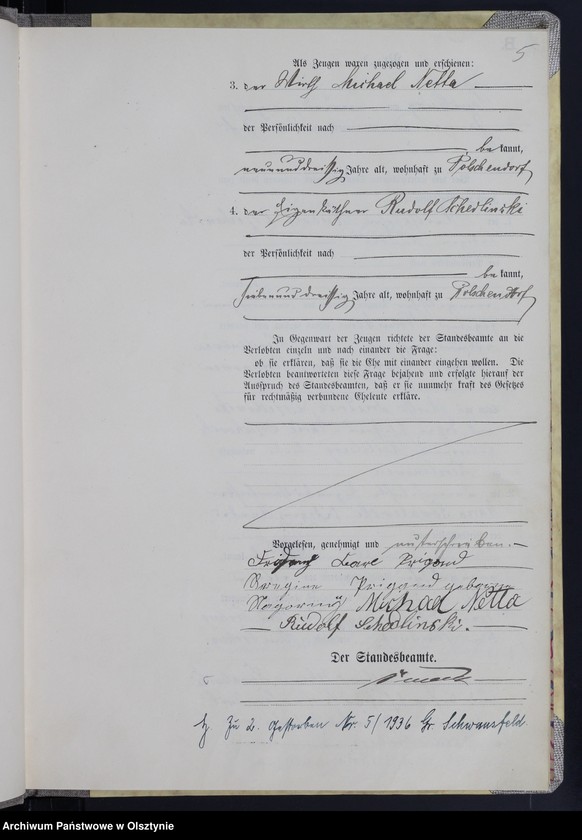 5
Als Zeugen waren zugezogen und erschienen:
3. der Wirth Michael Netta
der Persönlichkeit nach
be kannt,
neununddreissig Jahre alt, wohnhaft zu Pölschendorf
4. der Eigenkäthner Rudolf Schedlinski
der Persönlichkeit nach
be kannt,
siebenunddreissig Jahre alt, wohnhaft zu Pölschendorf
In Gegenwart der Zeugen richtete der Standesbeamte an die
Verlobten einzeln und nach einander die Frage:
ob sie erklären, daß sie die Ehe mit einander eingehen wollen. Die
Verlobten beantworteten diese Frage bejahend und erfolgte hierauf der
Ausspruch des Standesbeamten, daß er sie nunmehr kraft des Gesetzes
für rechtmäßig verbundene Eheleute erkläre.
Vorgelesen, genehmigt und unterschrieben.
Carl Prigand
Prigand geboren
Michael Netta
Rudolf Schedlinski.
Der Standesbeamte.
Zu 2. gestorben Nr. 5/1936 Gr. Schwansfeld
Archiwum Państwowe w Olsztynie